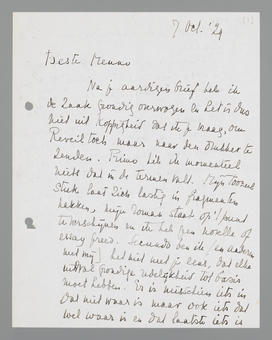 7 Oct. '24
Beste Menno
Na je aardigen brief heb ik
de zaak grondig overwogen en het is dus
niet uit koppigheid dat ik je vraag, om
Reveil toch maar naar den Dubbe te
zenden. Primo heb ik momenteel
niets dat in de termen valt. Mijn tooneel
stuk laat zich lastig in fragmenten
hakken, mijn roman staat op 't punt
te verschijnen en ik heb geen novelle of
essay gereed. Secundo ben ik (en anderen
met mij) het niet met je eens, dat elke
uitval grondige redelijkheid tot basis
moet hebben. Er is misschien iets in
dat niet waar is maar ook iets dat
wel waar is en dat laatste iets is